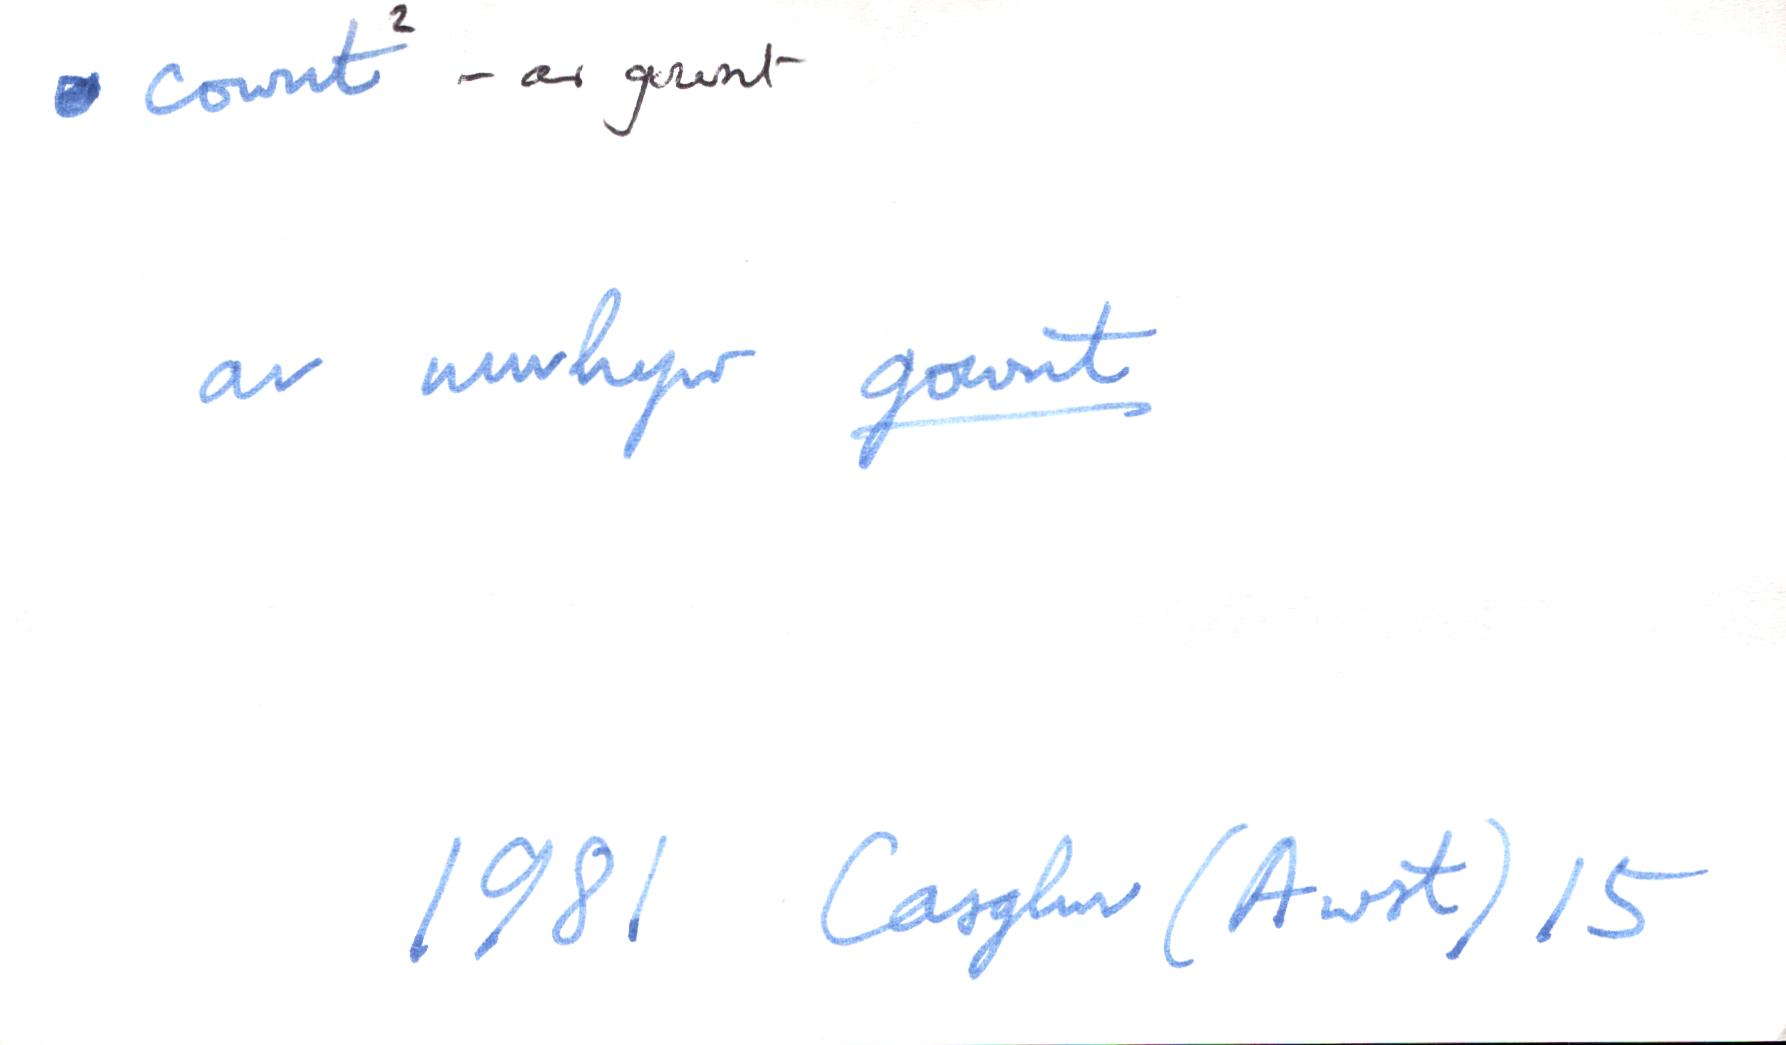 • cownt² – ar gownt
ar unrhyw gownt
1981 Casglwr (Awst) 15